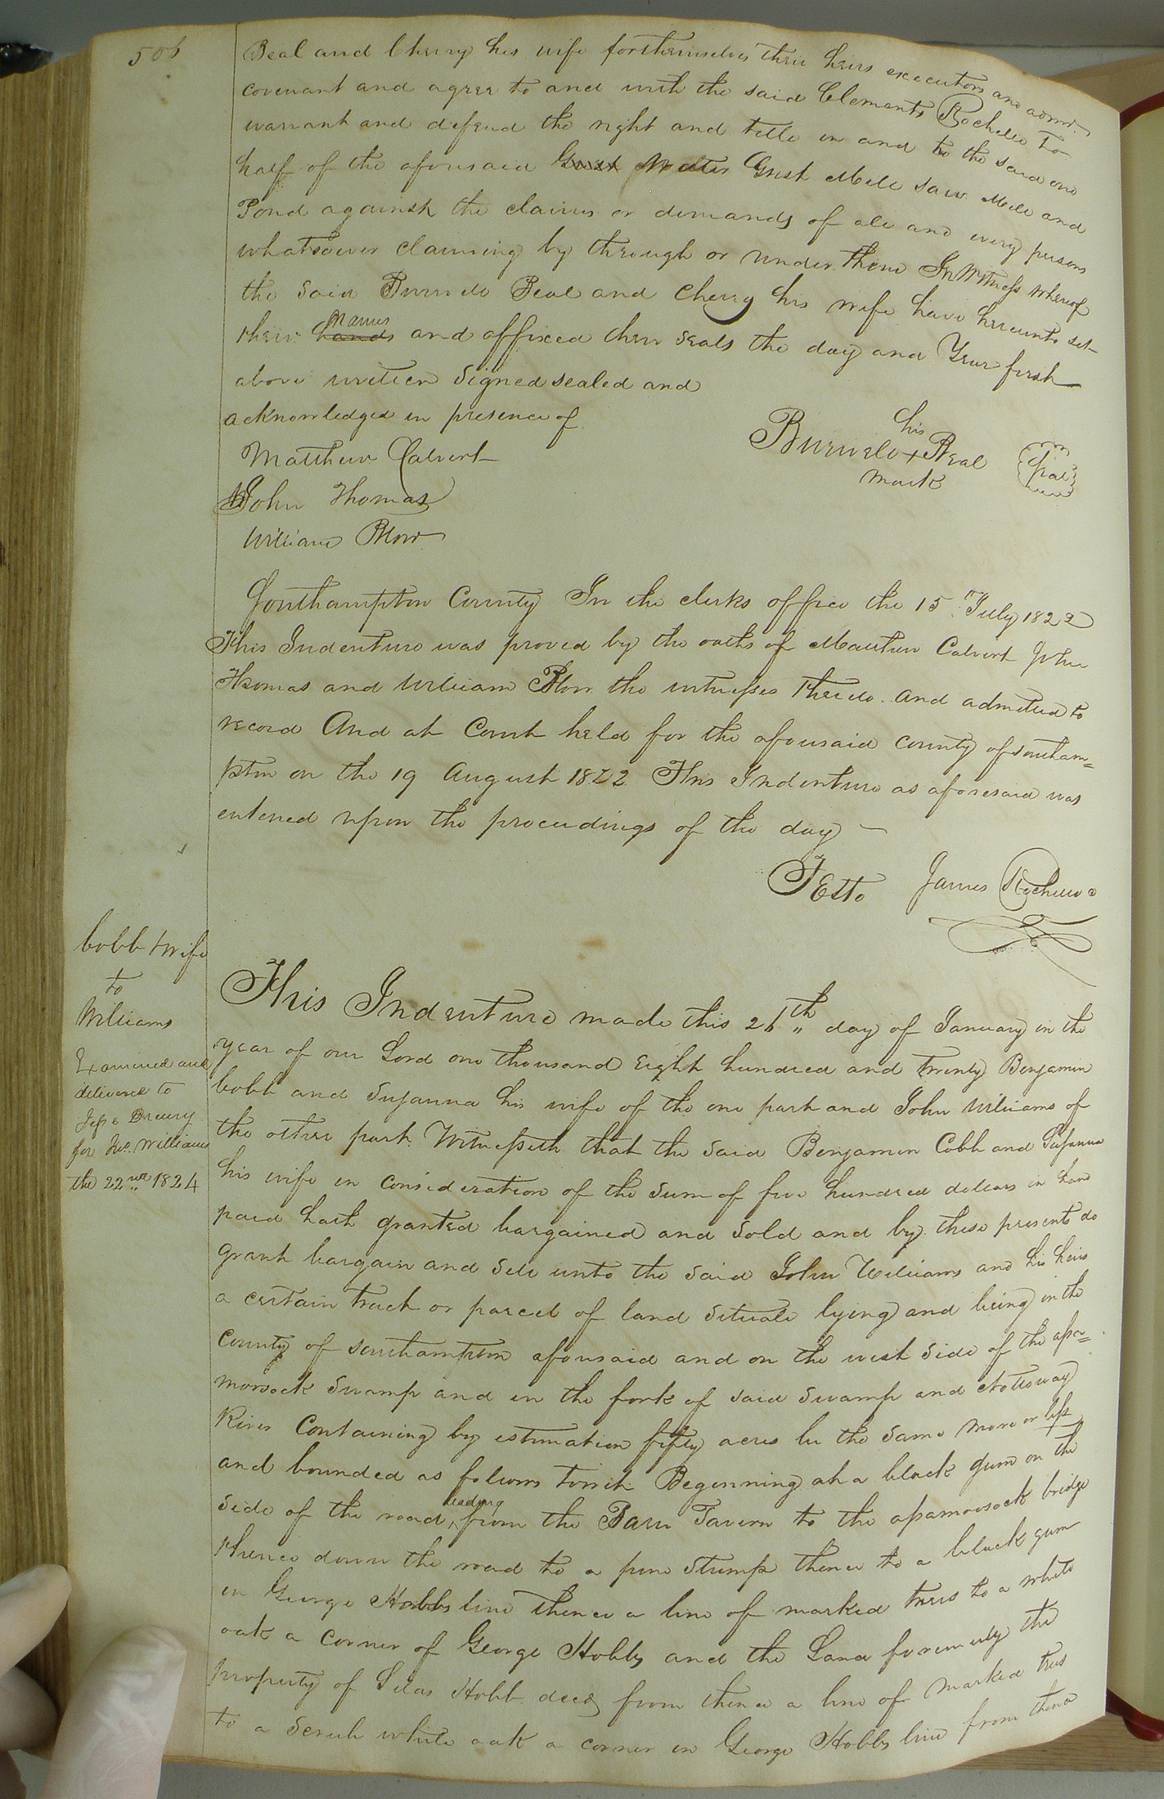 506
Beal and Cherry his wife for themselves their heirs executors and admrs.
covenant and agree to and with the said Clements Rochelle to
warrant and defend the right and title in and to the said one
half of the aforesaid Grist Water Grist Mill Saw Mill and
Pond against the claims or demands of all and every persons
whatsoever claiming by through or under them In Witness whereof
the said Burwell Beal and Cherry his wife have hereunto set
their hands names and affixed their seals the day and Year first
above written Signed sealed and
acknowledged in presence of
Matthew Calvert
John Thomas
William Blow
his
Burwell + Beal
mark
Seal
Southampton County In the clerks office the 15 July 1822
This Indenture was proved by the oaths of Matthew Calvert John
Thomas and William Blow the witnesses thereto. and admitted to
record And at Court held for the aforesaid county of Southam=
pton on the 19 August 1822 This Indenture as aforesaid was
entered upon the proceedings of the day —
Teste James Rochelle
Cobb & wife
to
Williams
Examined and
delivered to
Jesse Drewry
for Jno. Williams
the 22nd 1824
This Indenture made this 26th day of January in the
year of our Lord one thousand Eight hundred and twenty Benjamin
Cobb and Susanna his wife of the one part and John Williams of
the other part Witnesseth that the said Benjamin Cobb and Susanna
his wife in consideration of the sum of five hundred dollars in hand
paid hath granted bargained and sold and by these presents do
grant bargain and sell unto the said John Williams and his heirs
a certain track or parcel of land situate lying and being in the
County of Southampton aforesaid and on the west side of the apa=
moosock Swamp and in the fork of said Swamp and Nottoway
River Containing by estimation fifty acres be the same more or less
and bounded as follows towit Beginning at a black gum on the
side of the road leading from the Barn Tavern to the apamoosock bridge
thence down the road to a pine Stump thence to a black gum
in George Hobbs line thence a line of marked trees to a white
oak a corner of George Hobbs and the Land formerly the
property of Silas Hobb decd from thence a line of marked trees
to a scrub white oak a corner in George Hobbs line from thence